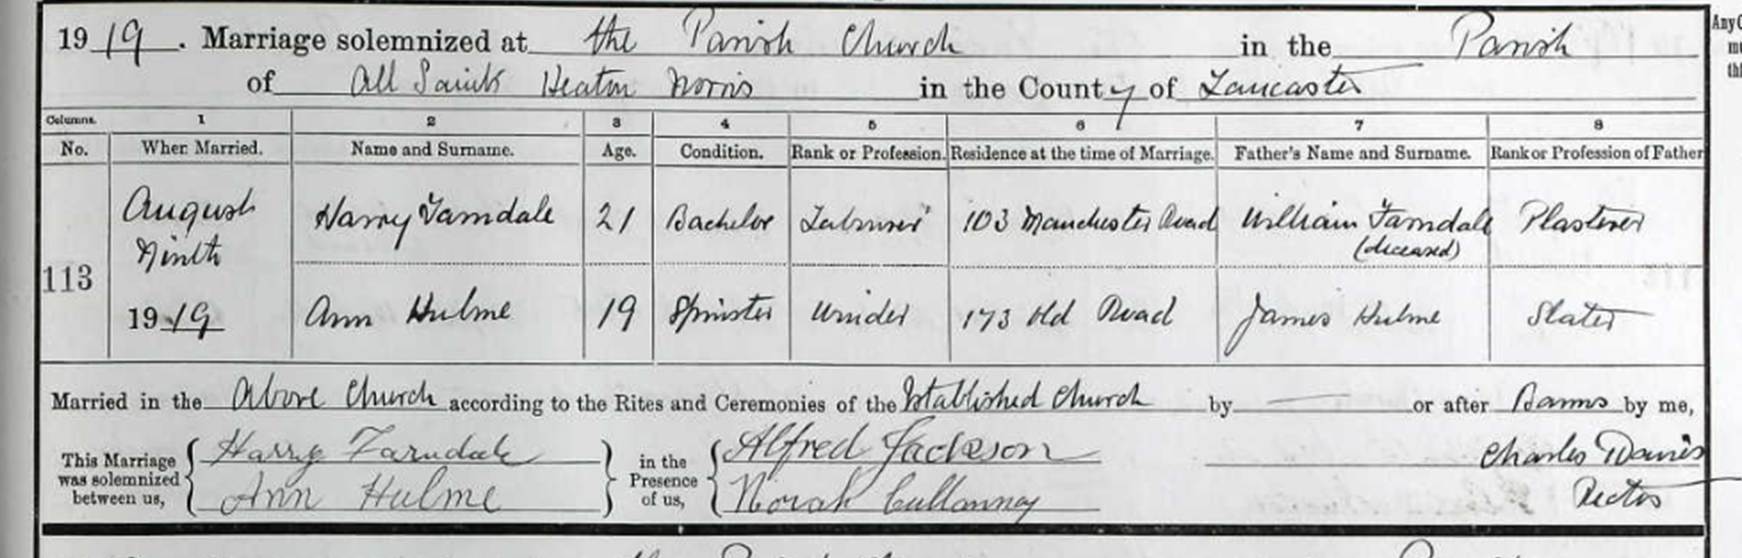 1919. Marriage solemnized at the Parish Church in the Parish
of All Saints Heaton Norris in the County of Lancaster
Columns. 1 2 3 4 5 6 7 8
No. When Married. Name and Surname. Age. Condition. Rank or Profession. Residence at the time of Marriage. Father's Name and Surname. Rank or Profession of Father
August Harry Farndale 21 Bachelor Labourer 103 Manchester Road William Farndale Plasterer
Ninth (deceased)
113
1919 Ann Hulme 19 Spinster Winder 173 Old Road James Hulme Slater
Married in the Above Church according to the Rites and Ceremonies of the Established Church by or after Banns by me,
This Marriage was solemnized between us, Harry Farndale in the Presence of us, Alfred Jackson Charles Davies
Ann Hulme Norah Rector
Any